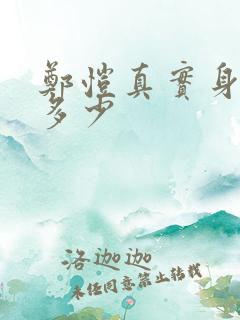 鄭愷真實身
多少
洛迦迦
未任同意禁止转载